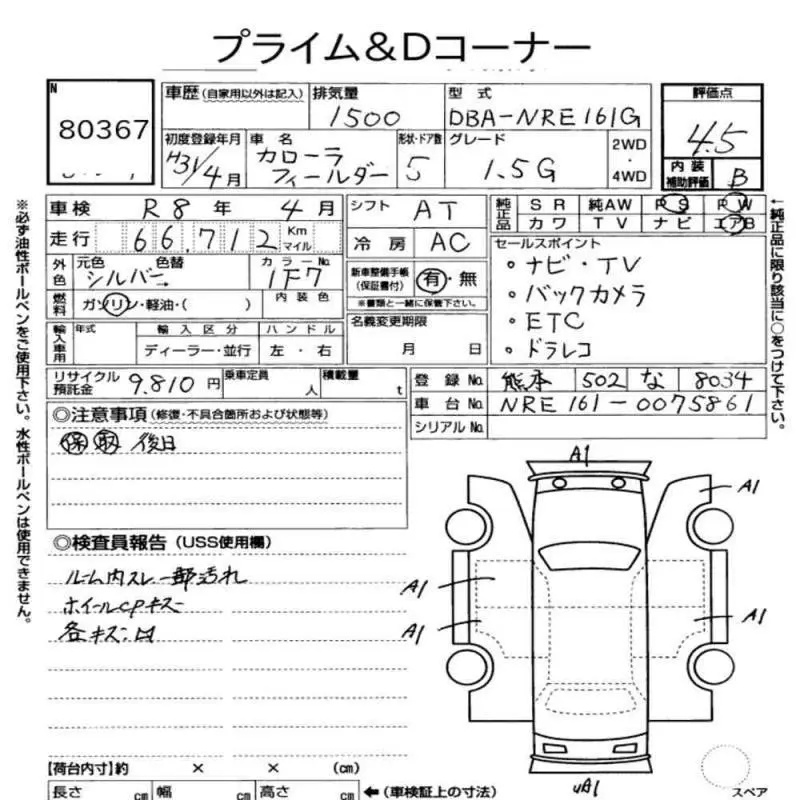 プライム&Dコーナー
N
80367
車歴(自家用以外は記入)
排気量
1500
型式
DBA-NRE161G
評価点
4.5
初度登録年月
H31/4月
車名
カローラ
フィールダー
形状・ドア数
5
グレード
1.5G
2WD
・
4WD
内装
補助評価
B
車検 R8年 4月
シフト
AT
純正品
SR 純AW PS PW
カワ TV ナビ エアB
走行 66,712 Km
マイル
冷房
AC
外色
元色 色替
シルバー
カラーNo
1F7
新車整備手帳
(保証書付)
有・無
※書類と一緒に保管下さい。
セールスポイント
。ナビ・TV
。バックカメラ
。ETC
。ドラレコ
燃料
ガソリン・軽油・( )
内装色
名義変更期限
月 日
輸入車用
年式
輸入区分
ディーラー・並行
ハンドル
左・右
リサイクル
預託金
9.810円
乗車定員
人
積載量
t
登録No. 熊本 502 な 8034
車台No. NRE161-0075861
シリアルNo.
◎注意事項(修復・不具合箇所および状態等)
保 取 後日
◎検査員報告(USS使用欄)
ルーム内スレ 一部汚れ
ホイールCPキズ
各キズ凹
A1
A1
A1
A1
A1
A1
スペア
【荷台内寸】約 × × (cm)
長さ cm 幅 cm 高さ cm ←(車検証上の寸法)
※必ず油性ボールペンをご使用下さい。水性ボールペンは使用できません。
←純正品に限り該当に○をつけて下さい。